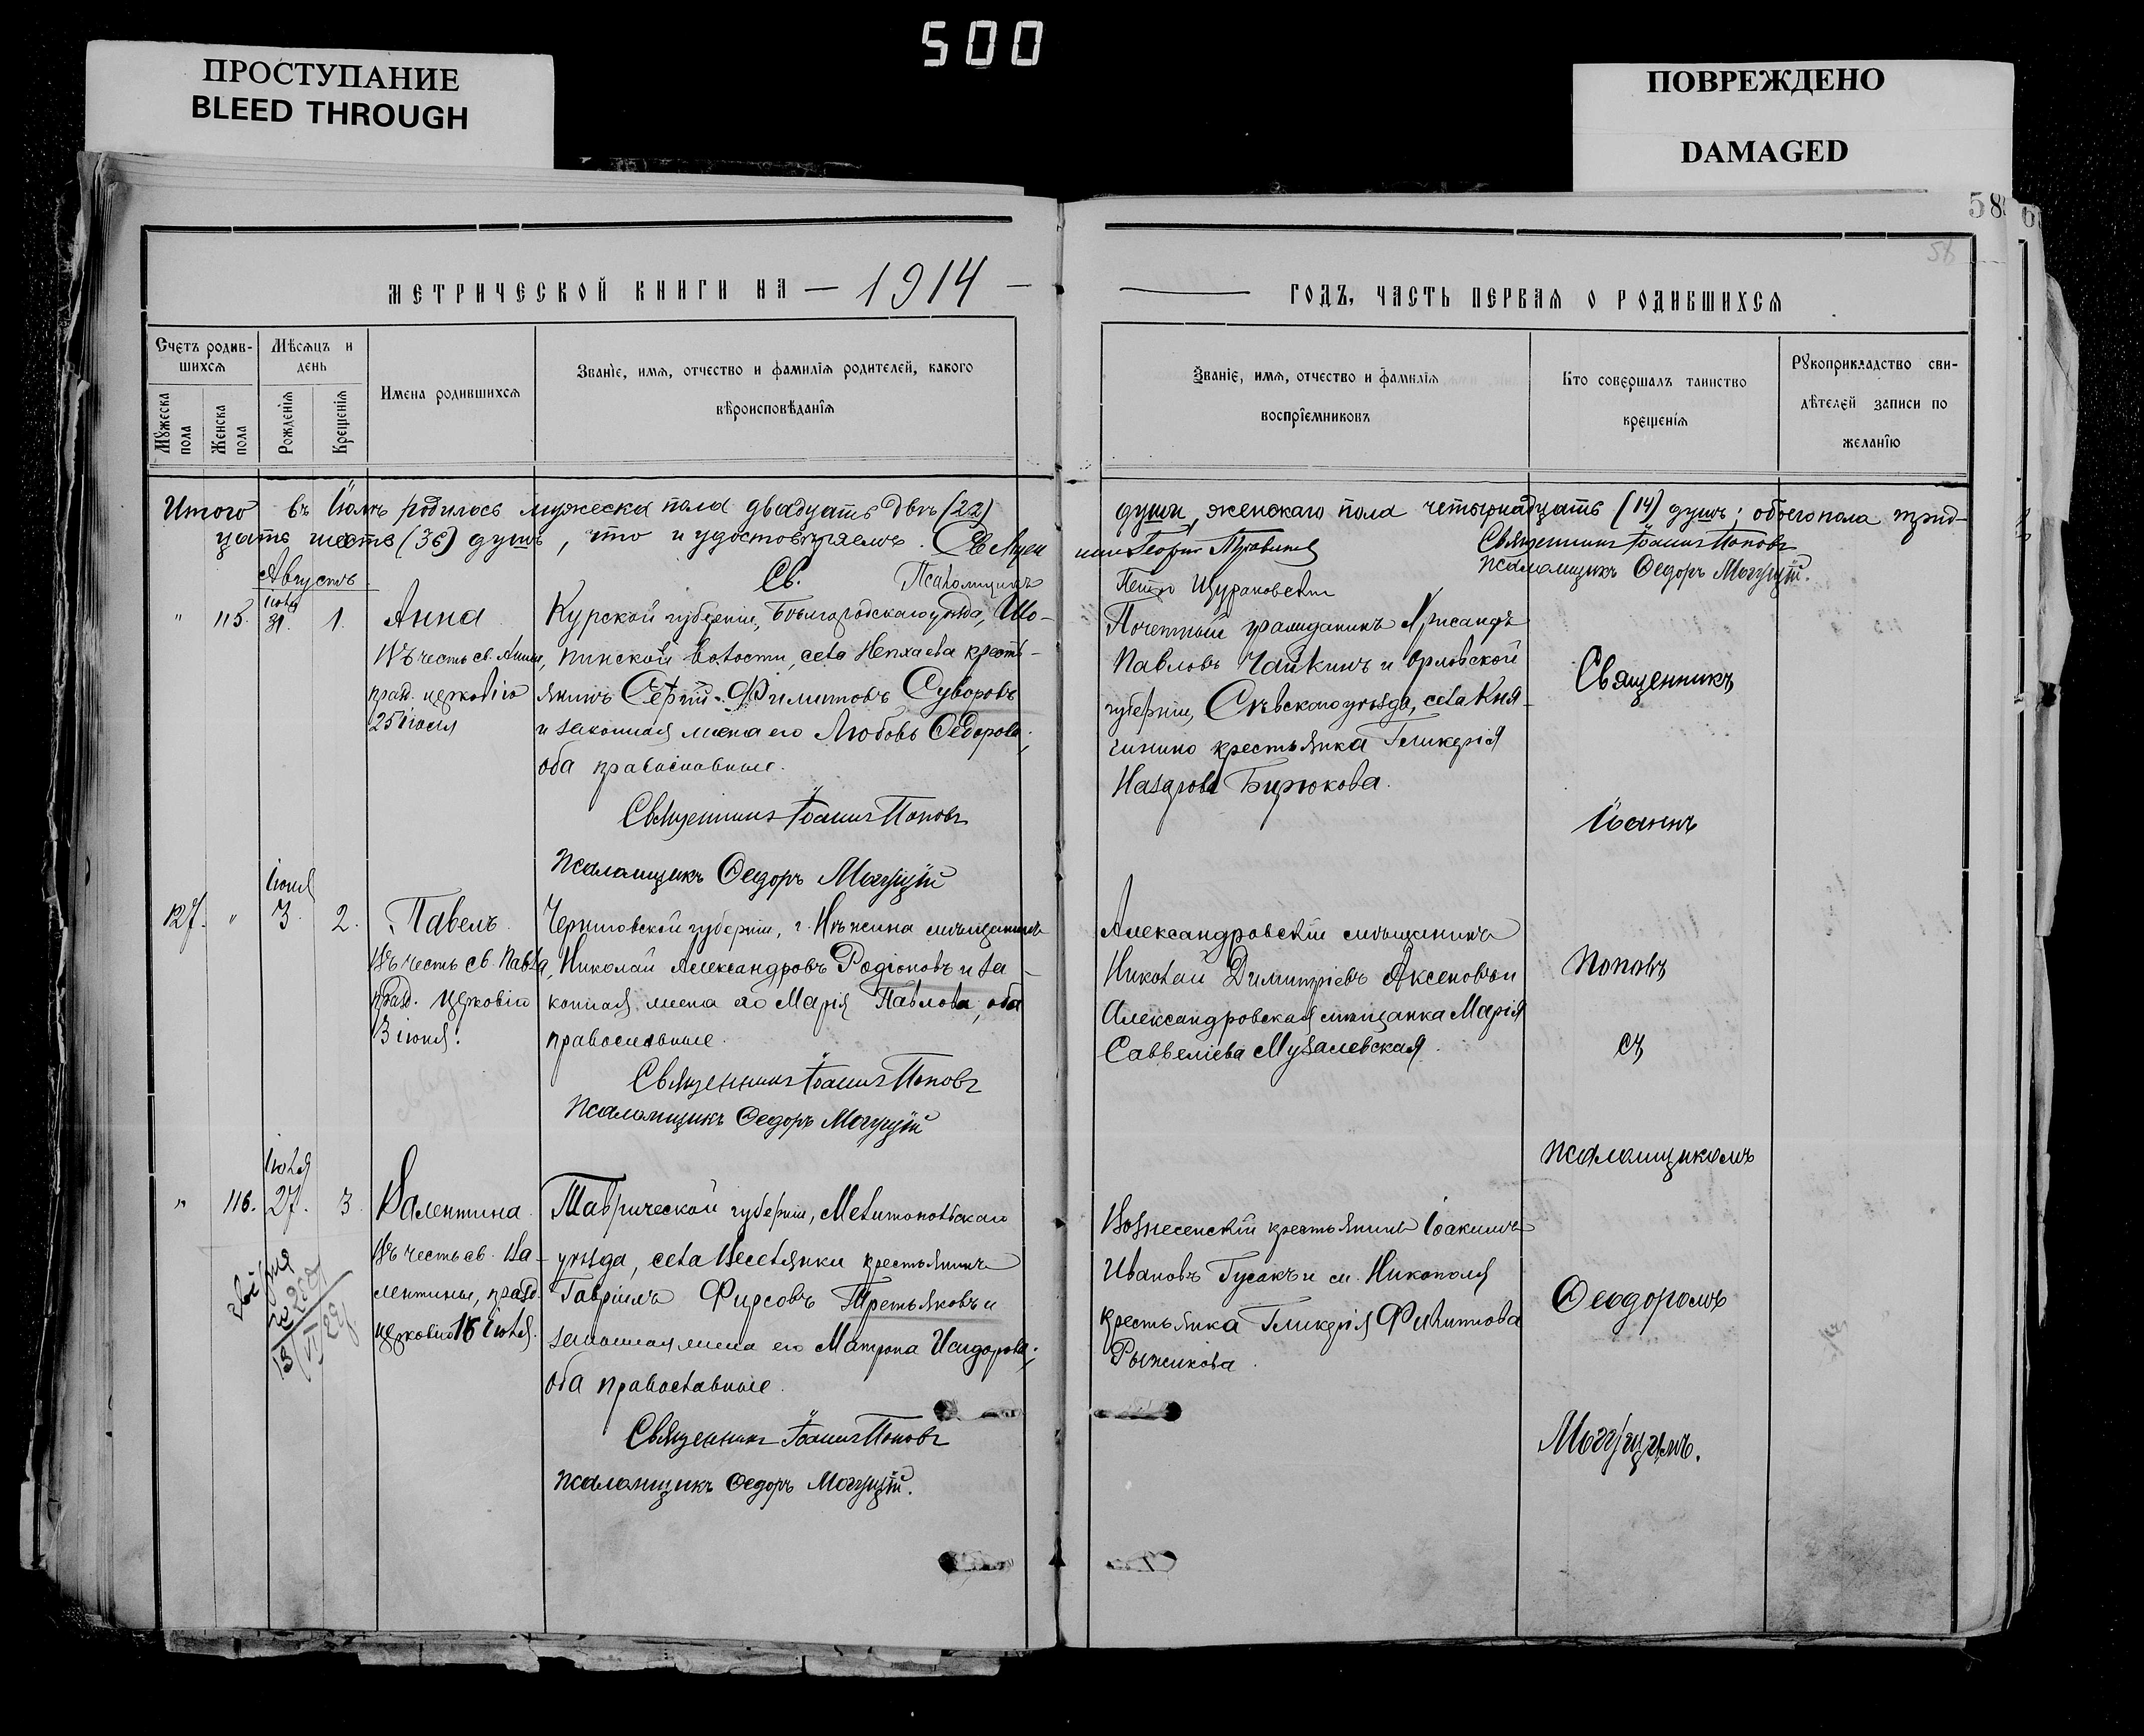 500
ПРОСТУПАНИЕ
BLEED THROUGH
ПОВРЕЖДЕНО
DAMAGED
58
58
МЕТРИЧЕСКОЙ КНИГИ НА — 1914 —
Счетъ родив-
шихся
Мѣсяцъ и
день
Мужеска пола
Женска пола
Рожденія
Крещенія
Имена родившихся
Званіе, имя, отчество и фамилія родителей, какого
вѣроисповѣданія
Итого въ Іюлѣ родилось мужеска пола двадцать двѣ (22)
цать шесть (36) душъ, что и удостовѣряемъ.
Августъ
Св. Псаломщикъ
" 115. Іюля 31. 1. Анна
Въ честь св. Анны,
празд. церковію
25 Іюля
Курской губерніи, Бѣлгородскаго уѣзда, Шо-
пинской волости, села Непхаева кресть-
янинъ Сергій Филиповъ Суворовъ
и законная жена его Любовь Ѳедорова;
оба православные.
Священникъ Іоаннъ Поповъ
Псаломщикъ Ѳеодоръ Могущій
127. " Іюня 3. 2. Павелъ
Въ честь св. Павла,
празд. церковію
3 іюня.
Черниговской губерніи, г. Нѣжина мѣщанинъ
Николай Александровъ Родіоновъ и за-
конная жена его Марія Павлова, оба
православные.
Священникъ Іоаннъ Поповъ
Псаломщикъ Ѳеодоръ Могущій
" 116. Іюля 27. 3. Валентина
Въ честь св. Ва-
лентины, празд.
церковію 16 Іюля.
Таврической губерніи, Мелитопольскаго
уѣзда, села Веселянки крестьянинъ
Гавріилъ Фирсовъ Третьяковъ и
законная жена его Матрона Исидорова;
оба православные.
Священникъ Іоаннъ Поповъ
Псаломщикъ Ѳеодоръ Могущій.
ГОДЪ, ЧАСТЬ ПЕРВАЯ О РОДИВШИХСЯ
Званіе, имя, отчество и фамилія
воспріемниковъ
Кто совершалъ таинство
крещенія
Рукоприкладство сви-
дѣтелей записи по
желанію
души, женскаго пола четырнадцать (14) душъ; обоего пола трид-
Священникъ Іоаннъ Поповъ
Псаломщикъ Ѳеодоръ Могущій.
Почетный гражданинъ Хрисанфъ
Павловъ Чайкинъ и Орловской
губерніи, Сѣвскаго уѣзда, села Кня-
гинино крестьянка Гликерія
Назарова Бирюкова.
Александровскій мѣщанинъ
Николай Димитріевъ Аксеновъ и
Александровская мѣщанка Марія
Саввеліева Музалевская.
Вознесенскій крестьянинъ Іоакимъ
Ивановъ Гусакъ и м. Никополя
крестьянка Гликерія Филиппова
Рыжикова.
Священникъ
Іоаннъ
Поповъ
съ
псаломщикомъ
Ѳеодоромъ
Могущимъ.